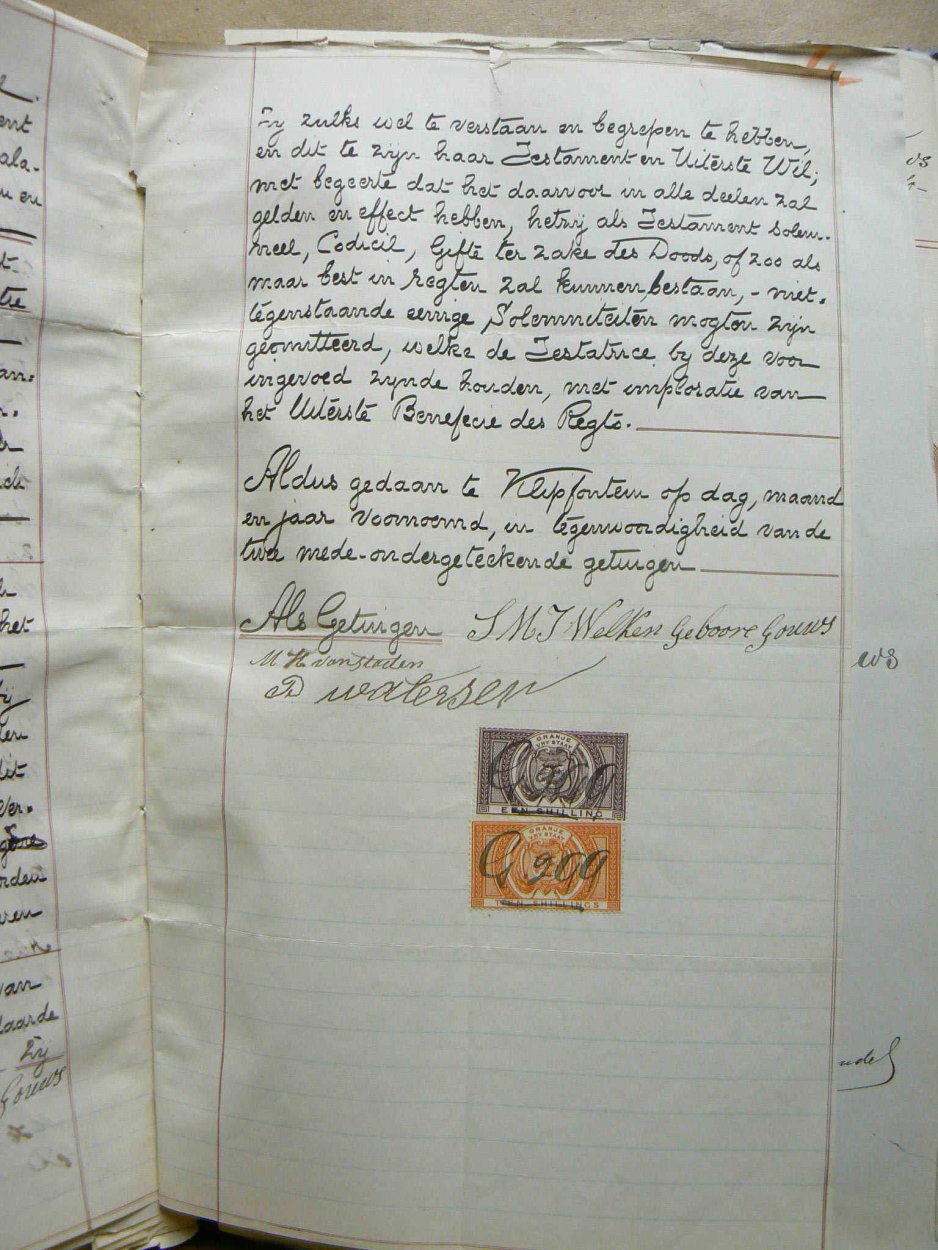 Zy zulks wel te verstaan en begrepen te hebben,
en dit te zijn haar Testament en Uiterste Wil;
met begeerte dat het daarvoor in alle deelen zal
gelden en effect hebben, hetzij als Testament solem-
neel, Codicil, Gifte ter zake des Doods, of zoo als
maar best in regten zal kunnen bestaan, - niet-
tegenstaande eenige Solemniteiten mogten zijn
geomitteerd, welke de Testatrice by deze voor
ingevoed zynde houden, met imploratie van
het Uiterste Benefecie des Regts.
Aldus gedaan te Klipfontein op dag, maand
en jaar voornoemd, in tegenwoordigheid van de
twee mede-ondergeteekende getuigen
Als Getuigen
S M J Welken Geboore Gouws
M H van Staden
D Watersen
ORANJE
VRY STAAT
EEN SHILLING
ORANJE
VRY STAAT
TIEN SHILLINGS
G 299
ws
udel
van
laarde
Zy
Gouws
het
dit
Ver-